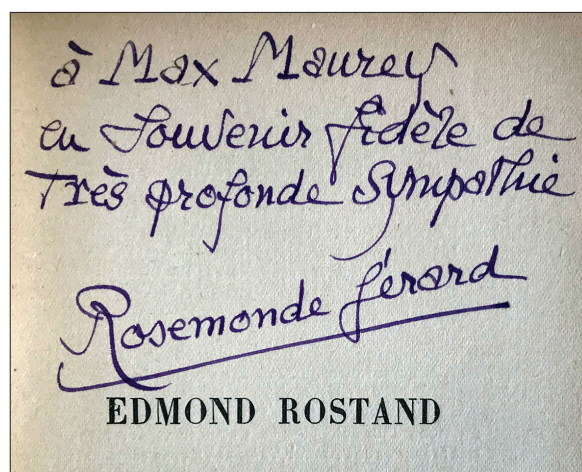 à Max Maurey
en Souvenir fidèle de
Très profonde Sympathie
Rosemonde Gérard
EDMOND ROSTAND